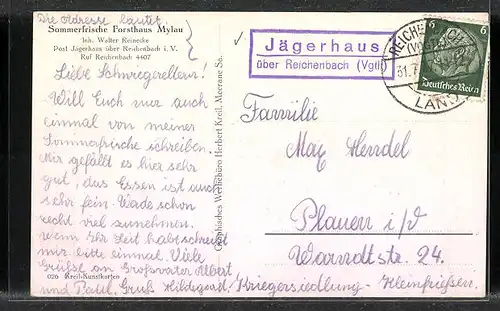 Die Adresse lautet:
Sommerfrische Forsthaus Mylau
Inh. Walter Reinecke
Post Jägerhaus über Reichenbach i. V.
Ruf Reichenbach 4407
Liebe Schwiegereltern!
Will Euch nur auch
einmal von meiner
Sommerfrische schreiben.
Mir gefällt es hier sehr
gut, das Essen ist auch
sehr fein. Werde schon
recht viel zunehmen.
Wenn Ihr Zeit habt schreibt
mir bitte einmal. Viele
Grüße an Großvater Albert
und Gruß Hildegard
026 Kreil-Kunstkarten
Graphisches Werbebüro Herbert Kreil, Meerane Sa.
Jägerhaus
über Reichenbach (Vogtl)
REICHENBACH
(VOGTL)
31.7.
LAND
6 6
Deutsches Reich
Familie
Max Hendel
Plauen i/V
Warndtstr. 24.
Kriegersiedlung -